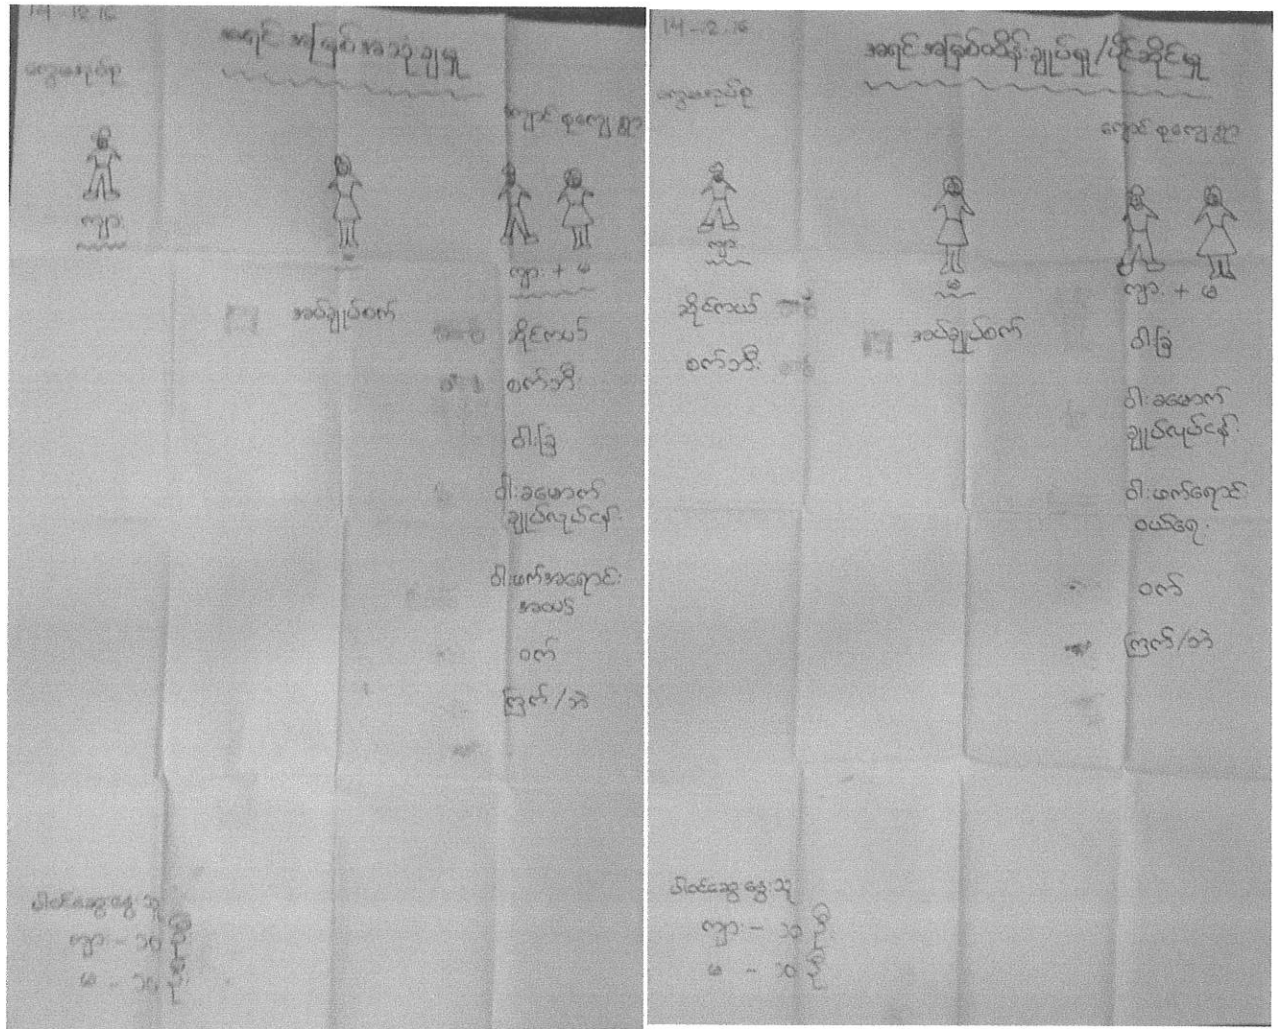 14-12-16
အရင်းအမြစ်အသုံးချမှု
ကျား
မ
ကျား + မ
အပ်ချုပ်စက်
ဆိုင်ကယ်
စက်ဘီး
ဝါးခြံ
ဝါးခမောက်
ချုပ်လုပ်ငန်း
ဝါးဖက်အရောင်း
အဝယ်
ဝက်
ကြက်/ဘဲ
ပါဝင်ဆွေးနွေးသူ
ကျား - ၁၀ ဦး
မ - ၁၀ ဦး
14-12-16
အရင်းအမြစ်ထိန်းချုပ်မှု/ပိုင်ဆိုင်မှု
ကျား
မ
ကျား + မ
ဆိုင်ကယ်
စက်ဘီး
အပ်ချုပ်စက်
ဝါးခြံ
ဝါးခမောက်
ချုပ်လုပ်ငန်း
ဝါးဖက်ရောင်း
ဝယ်ရေး
ဝက်
ကြက်/ဘဲ
ပါဝင်ဆွေးနွေးသူ
ကျား - ၁၀ ဦး
မ - ၁၀ ဦး